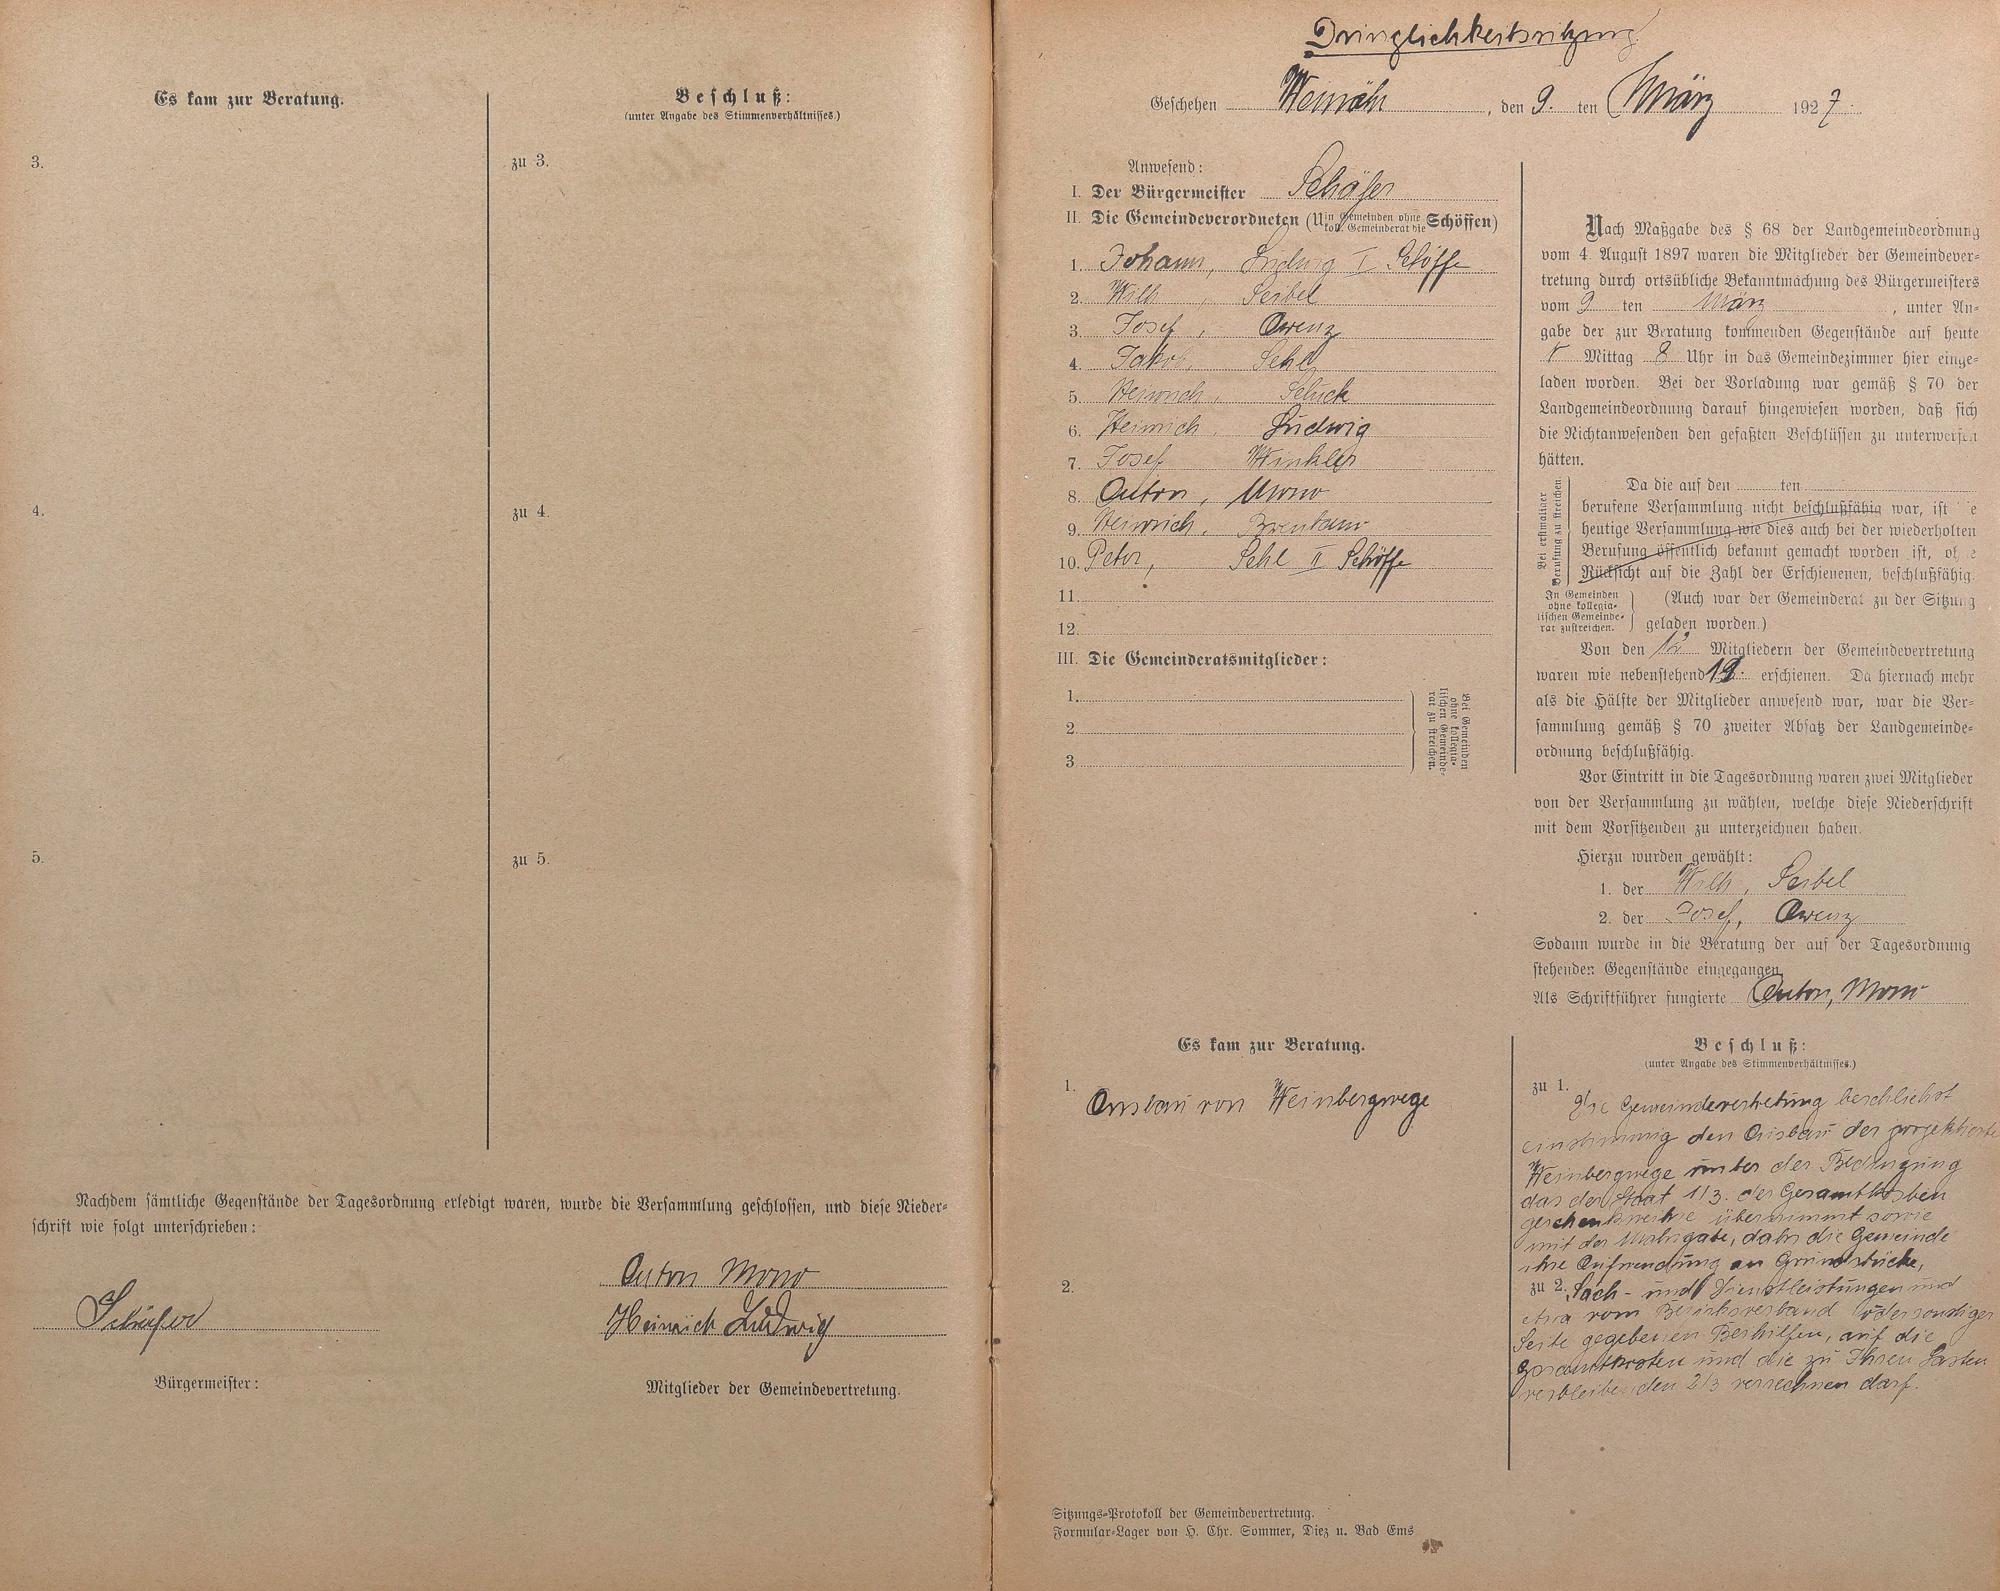 Es kam zur Beratung.
Beschluß:
(unter Angabe des Stimmenverhältnisses.)
3.
zu 3.
4.
zu 4.
5.
zu 5.
Nachdem sämtliche Gegenstände der Tagesordnung erledigt waren, wurde die Versammlung geschlossen, und diese Nieder-
schrift wie folgt unterschrieben:
Anton Mono
Schäfer
Heinrich Ludwig
Bürgermeister:
Mitglieder der Gemeindevertretung.
Dringlichkeitssitzung
Geschehen Weinähr, den 9. ten März 1927.
Anwesend:
I. Der Bürgermeister Schäfer
II. Die Gemeindeverordneten (U in Gemeinden ohne koll. Gemeinderat die Schöffen)
1. Johann, Ludwig I Schöffe
2. Wilh, Seibel
3. Josef,
4. Jakob, Sehl
5. Heinrich, Schuck
6. Heinrich, Ludwig
7. Josef Winkler
8. Anton, Mono
9. Heinrich,
10. Peter, Sehl II Schöffe
11.
12.
III. Die Gemeinderatsmitglieder:
1.
2.
3
Bei Gemeinden
ohne kollegia-
lischen Gemeinde-
rat zu streichen.
Nach Maßgabe des § 68 der Landgemeindeordnung
vom 4. August 1897 waren die Mitglieder der Gemeindever-
tretung durch ortsübliche Bekanntmachung des Bürgermeisters
vom 9 ten März, unter An-
gabe der zur Beratung kommenden Gegenstände auf heute
Mittag 8 Uhr in das Gemeindezimmer hier einge-
laden worden. Bei der Vorladung war gemäß § 70 der
Landgemeindeordnung darauf hingewiesen worden, daß sich
die Nichtanwesenden den gefaßten Beschlüssen zu unterwerfen
hätten.
Bei erstmaliger
Berufung zu streichen.
Da die auf den ten
berufene Versammlung nicht beschlußfähig war, ist e
heutige Versammlung wie dies auch bei der wiederholten
Berufung öffentlich bekannt gemacht worden ist, oh e
Rücksicht auf die Zahl der Erschienenen, beschlußfähig.
In Gemeinden
ohne kollegia-
lischen Gemeinde-
rat zustreichen.
(Auch war der Gemeinderat zu der Sitzung
geladen worden.)
Von den 12 Mitgliedern der Gemeindevertretung
waren wie nebenstehend erschienen. Da hiernach mehr
als die Hälfte der Mitglieder anwesend war, war die Ver-
sammlung gemäß § 70 zweiter Absatz der Landgemeinde-
ordnung beschlußfähig.
Vor Eintritt in die Tagesordnung waren zwei Mitglieder
von der Versammlung zu wählen, welche diese Niederschrift
mit dem Vorsitzenden zu unterzeichnen haben.
Hierzu wurden gewählt:
1. der Wilh, Seibel
2. der Josef,
Sodann wurde in die Beratung der auf der Tagesordnung
stehenden Gegenstände eingegangen.
Als Schriftführer fungierte Anton, Mono
Es kam zur Beratung.
Beschluß:
(unter Angabe des Stimmenverhältnisses.)
1.
Ausbau von Weinbergwege
zu 1.
Die Gemeindevertretung beschliehst
einstimmig den Ausbau der projektierte
Weinbergwege unter der Bedingung
das der Staat 1/3. der Gesamtkosten
geschenkweihse übernimmt sowie
mit der Mahsgabe, dahs die Gemeinde
ihre Aufwendung an Grundstücke,
2.
zu 2.
Sach- und Dienstleistungen und
etwa vom Bezirksverband oder sondiger
Seite gegebenen Beihilfen, auf die
Gesamtkosten und die zu Ihren Lasten
verbleibenden 2/3 verrechnen darf.
Sitzungs-Protokoll der Gemeindevertretung.
Formular-Lager von H. Chr. Sommer, Diez u. Bad Ems